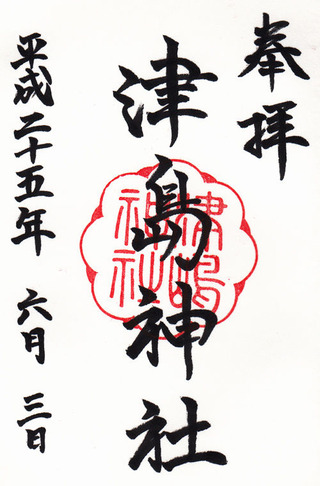 奉拝
津島神社
津嶋
神社
平成二十五年 六月 三日